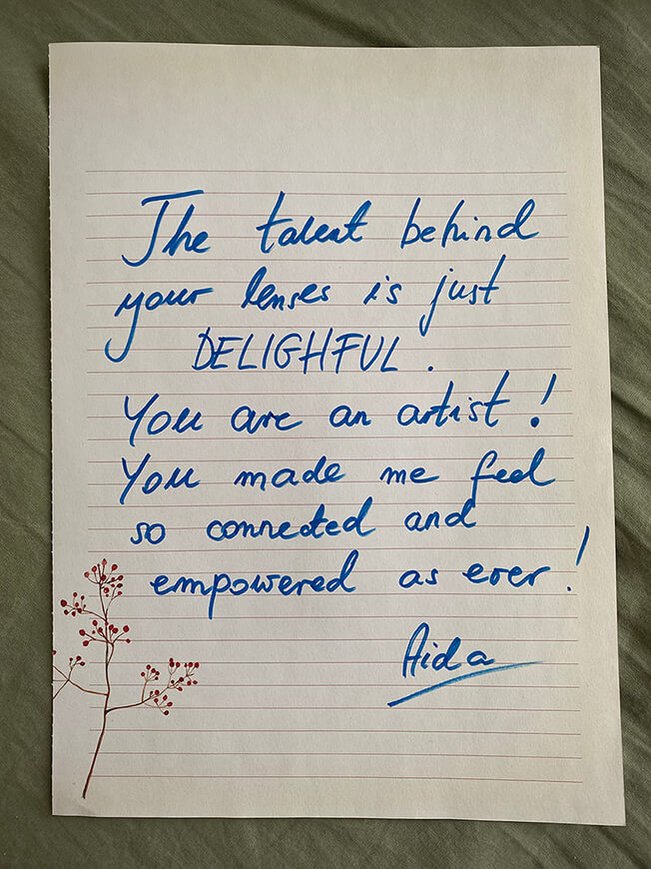 The talent behind
your lenses is just
DELIGHFUL.
You are an artist!
You made me feel
so connected and
empowered as ever!
Aida